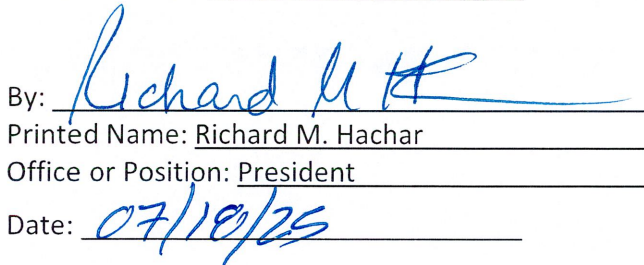 By: Richard M H
Printed Name: Richard M. Hachar
Office or Position: President
Date: 07/18/25